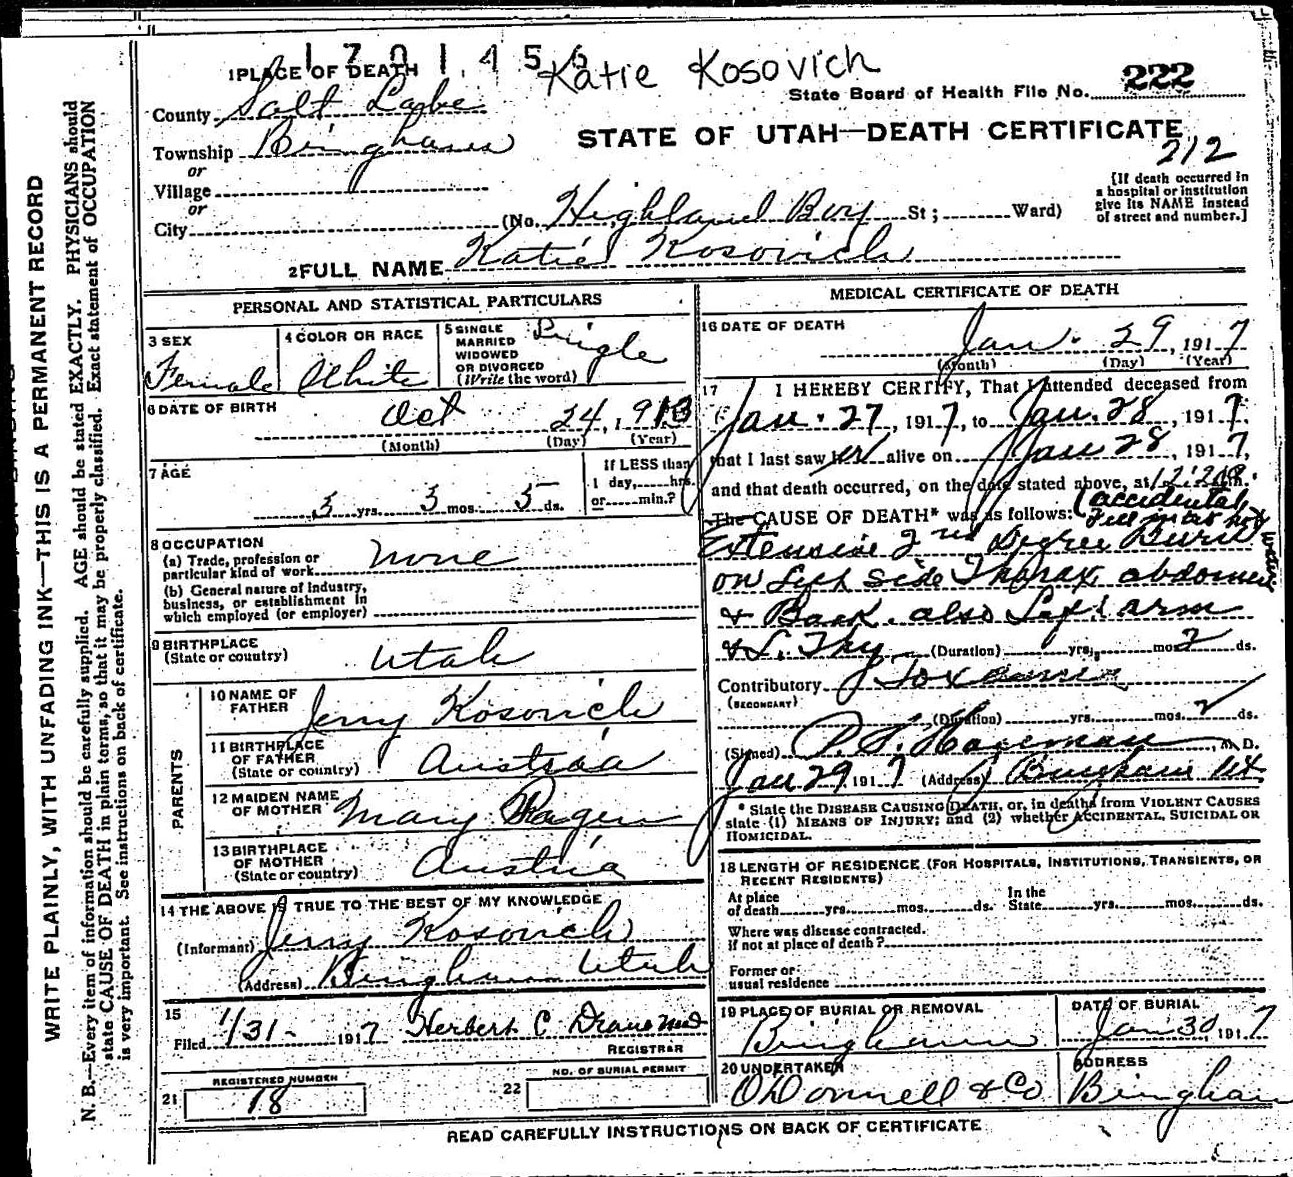 1701456
Katie Kosovich
1 PLACE OF DEATH
State Board of Health File No. 222
County Salt Lake
STATE OF UTAH—DEATH CERTIFICATE
212
Township Bingham
or
Village
or
City
(No. Highland Boy St; Ward)
[If death occurred in
a hospital or institution
give its NAME instead
of street and number.]
2 FULL NAME Katie Kosovich
WRITE PLAINLY, WITH UNFADING INK—THIS IS A PERMANENT RECORD
N. B.—Every item of information should be carefully supplied. AGE should be stated EXACTLY. PHYSICIANS should
state CAUSE OF DEATH in plain terms, so that it may be properly classified. Exact statement of OCCUPATION
is very important. See instructions on back of certificate.
PERSONAL AND STATISTICAL PARTICULARS
3 SEX
Female
4 COLOR OR RACE
White
5 SINGLE
MARRIED
WIDOWED
OR DIVORCED
(Write the word)
Single
6 DATE OF BIRTH
Oct 24, 1913
(Month) (Day) (Year)
7 AGE
3 yrs. 3 mos. 5 ds.
If LESS than
1 day, hrs.
or min.?
8 OCCUPATION
(a) Trade, profession or
particular kind of work none
(b) General nature of industry,
business, or establishment in
which employed (or employer)
9 BIRTHPLACE
(State or country) Utah
PARENTS
10 NAME OF
FATHER Jerry Kosovich
11 BIRTHPLACE
OF FATHER
(State or country) Austria
12 MAIDEN NAME
OF MOTHER Mary
13 BIRTHPLACE
OF MOTHER
(State or country) Austria
14 THE ABOVE IS TRUE TO THE BEST OF MY KNOWLEDGE
(Informant) Jerry Kosovich
(Address) Bingham Utah
15
Filed 1/31- 1917 Herbert C
REGISTRAR
REGISTERED NUMBER
21 18
NO. OF BURIAL PERMIT
22
MEDICAL CERTIFICATE OF DEATH
16 DATE OF DEATH
Jan. 29, 1917
(Month) (Day) (Year)
17 I HEREBY CERTIFY, That I attended deceased from
Jan. 27, 1917, to Jan. 28, 1917.
that I last saw her alive on Jan 28, 1917,
and that death occurred, on the date stated above, at m.
(accidental
The CAUSE OF DEATH* was as follows: Fell into hot
water
Extensive 2nd Degree Burn
on Left side Thorax, abdomen
& Back. also Left arm
& L. Thy (Duration) yrs. mos. 2 ds.
Contributory Toxaemia
(SECONDARY)
(Duration) yrs. mos. 2 ds.
(Signed) M. D.
Jan 29 1917 (Address) Bingham Ut.
* State the DISEASE CAUSING DEATH, or, in deaths from VIOLENT CAUSES
state (1) MEANS OF INJURY; and (2) whether ACCIDENTAL, SUICIDAL OR
HOMICIDAL.
18 LENGTH OF RESIDENCE (FOR HOSPITALS, INSTITUTIONS, TRANSIENTS, OR
RECENT RESIDENTS)
At place
of death yrs. mos. ds. In the
State yrs. mos. ds.
Where was disease contracted.
if not at place of death?
Former or
usual residence
19 PLACE OF BURIAL OR REMOVAL
Bingham
DATE OF BURIAL
Jan 30, 1917
20 UNDERTAKER
O'Donnell & Co
ADDRESS
Bingham
READ CAREFULLY INSTRUCTIONS ON BACK OF CERTIFICATE